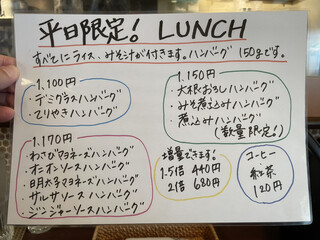 平日限定! LUNCH
すべてにライス、みそ汁が付きます。ハンバーグ 150gです。
1,100円
・デミグラスハンバーグ
・てりやきハンバーグ
1,150円
・大根おろしハンバーグ
・みそ煮込みハンバーグ
・煮込みハンバーグ
(数量限定!)
1,170円
・わさびマヨネーズハンバーグ
・オニオンソースハンバーグ
・明太子マヨネーズハンバーグ
・サルサソースハンバーグ
・ジンジャーソースハンバーグ
増量できます!
1.5倍 440円
2倍 680円
コーヒー
紅茶
120円